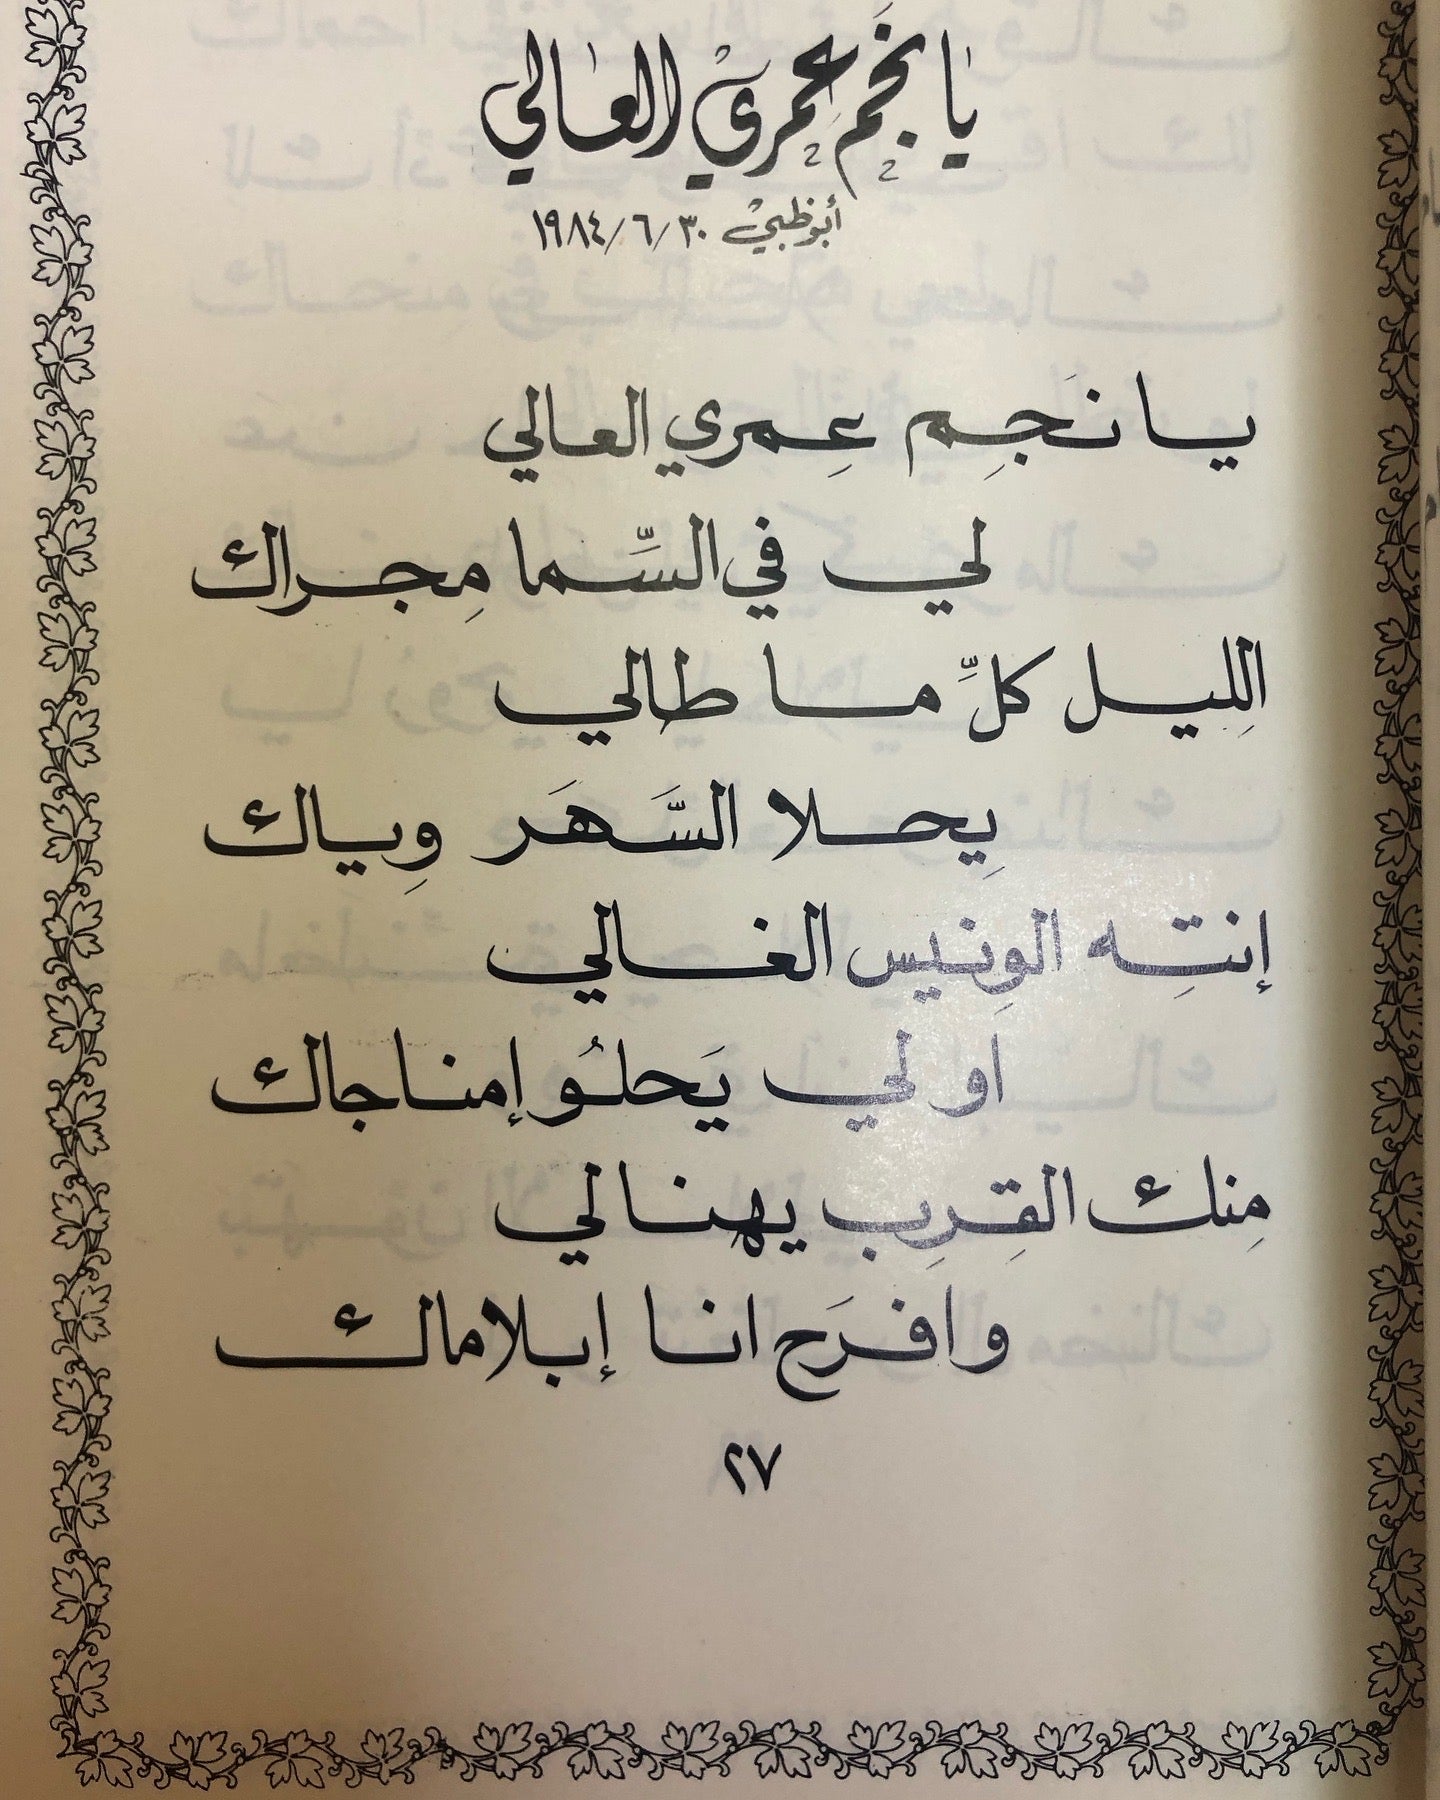 يا نجَم عمري العالي
أبوظبي ٣٠/٦/١٩٨٤
يا نَجِم عِمري العالي
لي في السِّما مِجراك
اللِيل كلِّ ما طالي
يِحلا السَّهَر وِياك
إنتِه الوِنيس الغالي
او لي يَحلُو إمناجاك
مِنك القِرِب يهنالي
وافرَح انا إبلاماك
٢٧